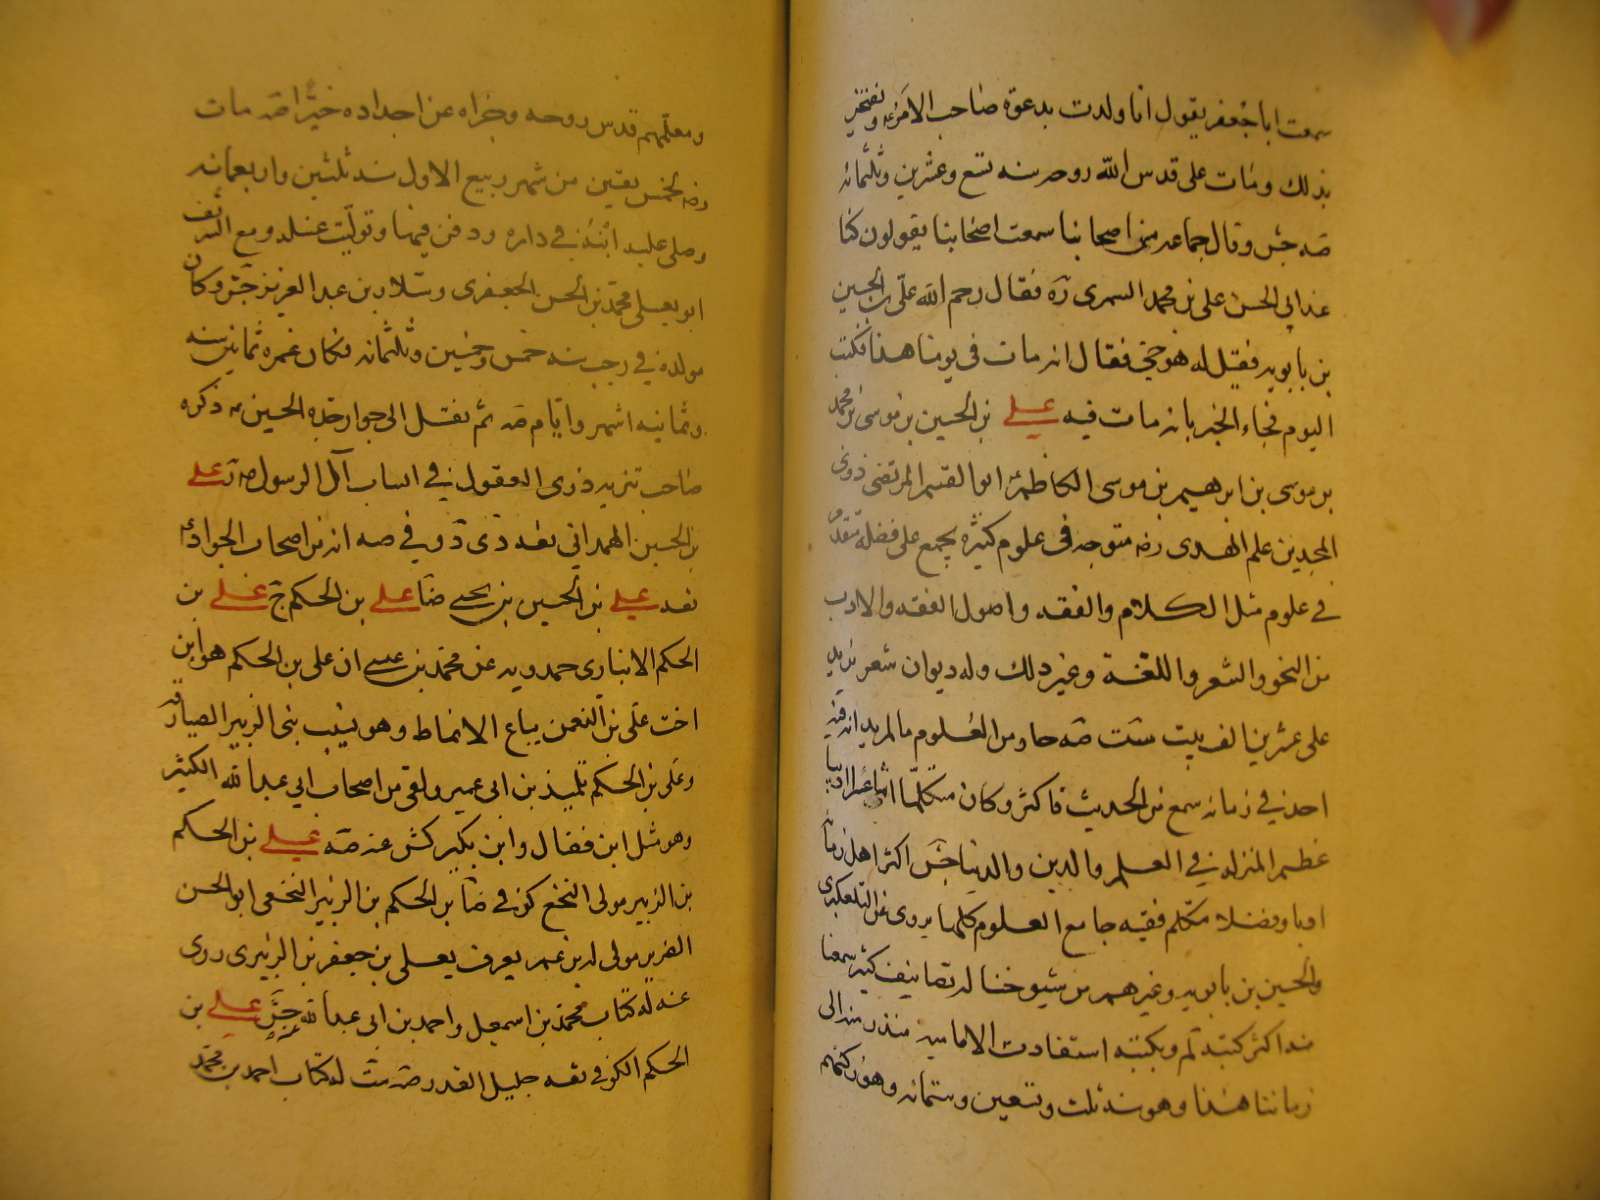 سمعت ابا جعفر يقول انا ولدت بدعوة صاحب الامر ع ويفتخر
بذلك ومات على قدس الله روحه سنه تسع وعشرين وثلثمائه
صه جش وقال جماعه من اصحابنا سمعت اصحابنا يقولون كنا
عند ابى الحسن على بن محمد السمرى ره فقال رحم الله على بن الحسين
بن بابويه فقيل له هو حى فقال انه مات فى يومنا هذا فكتب
اليوم فجاء الخبر بانه مات فيه على بن الحسين بن موسى بن محمد
بن موسى بن ابرهيم بن موسى الكاظم ع ابو القسم المرتضى ذوى
المجدين علم الهدى رضه متوحد فى علوم كثيره يجمع على فضله مقدم
فى علوم مثل الكلام والفقه واصول الفقه والادب
من النحو والشعر واللغة وغير ذلك وله ديوان شعر يزيد
على عشرين الف بيت ست صه حاو من العلوم ما لم يدانه فيه
احد فى زمانه سمع من الحديث فاكثر وكان متكلما شاعرا اديبا
عظيم المنزله فى العلم والدين والدنيا جش اكثر اهل زمانه
ادبا وفضلا متكلم فقيه جامع العلوم كلها يروى عن التلعكبرى
والحسين بن بابويه وغيرهم من شيوخنا له تصانيف كثير سمعنا
منه اكثر كتبه لم وبكتبه استفادت الاماميه منذ زمنه الى
زماننا هذا وهو سنه ثلث وتسعين وستمائه وهو ركنهم
ومعلمهم قدس روحه وجزاه عن اجداده خيرا صه مات
رضه لخمس بقين من شهر ربيع الاول سنه ثلثين واربعمائه
وصلى عليه ابنه فى داره ودفن فيها وتوليت غسله ومع الشريف
ابو يعلى محمد بن الحسن الجعفرى وسلار بن عبد العزيز جش وكان
مولده فى رجب سنه خمس وخمسين وثلثمائه فكان عمره ثمانين سنه
وثمانيه اشهر وايام صه ثم نقل الى جوار جده الحسين ع ذكره
صاحب تنزيه ذوى العقول فى انساب آل الرسول ص على
بن الحسين الهمدانى ثقه دى د وفى صه انه من اصحاب الجواد ع
ثقه على بن الحسين بن يحيى ضا على بن الحكم ج على بن
الحكم الانبارى حمدويه عن محمد بن عيسى ان على بن الحكم هو ابن
اخت على بن النعمن بياع الانماط وهو نسيب بنى الزبير الصيارفه
وعلى بن الحكم تلميذ بن ابى عمير ولقى من اصحاب ابى عبد الله الكثير
وهو مثل ابن فضال وابن بكير كش عنه صه على بن الحكم
بن الزبير مولى النخع كوفى ضا بن الحكم بن الزبير النخعى ابو الحسن
الضرير مولى له بن عم يعرف بعلى بن جعفر بن الزبيرى روى
عنه له كتاب محمد بن اسمعيل واحمد بن ابى عبد الله جش على بن
الحكم الكوفى ثقه جليل القدر صه ست له كتاب احمد بن محمد